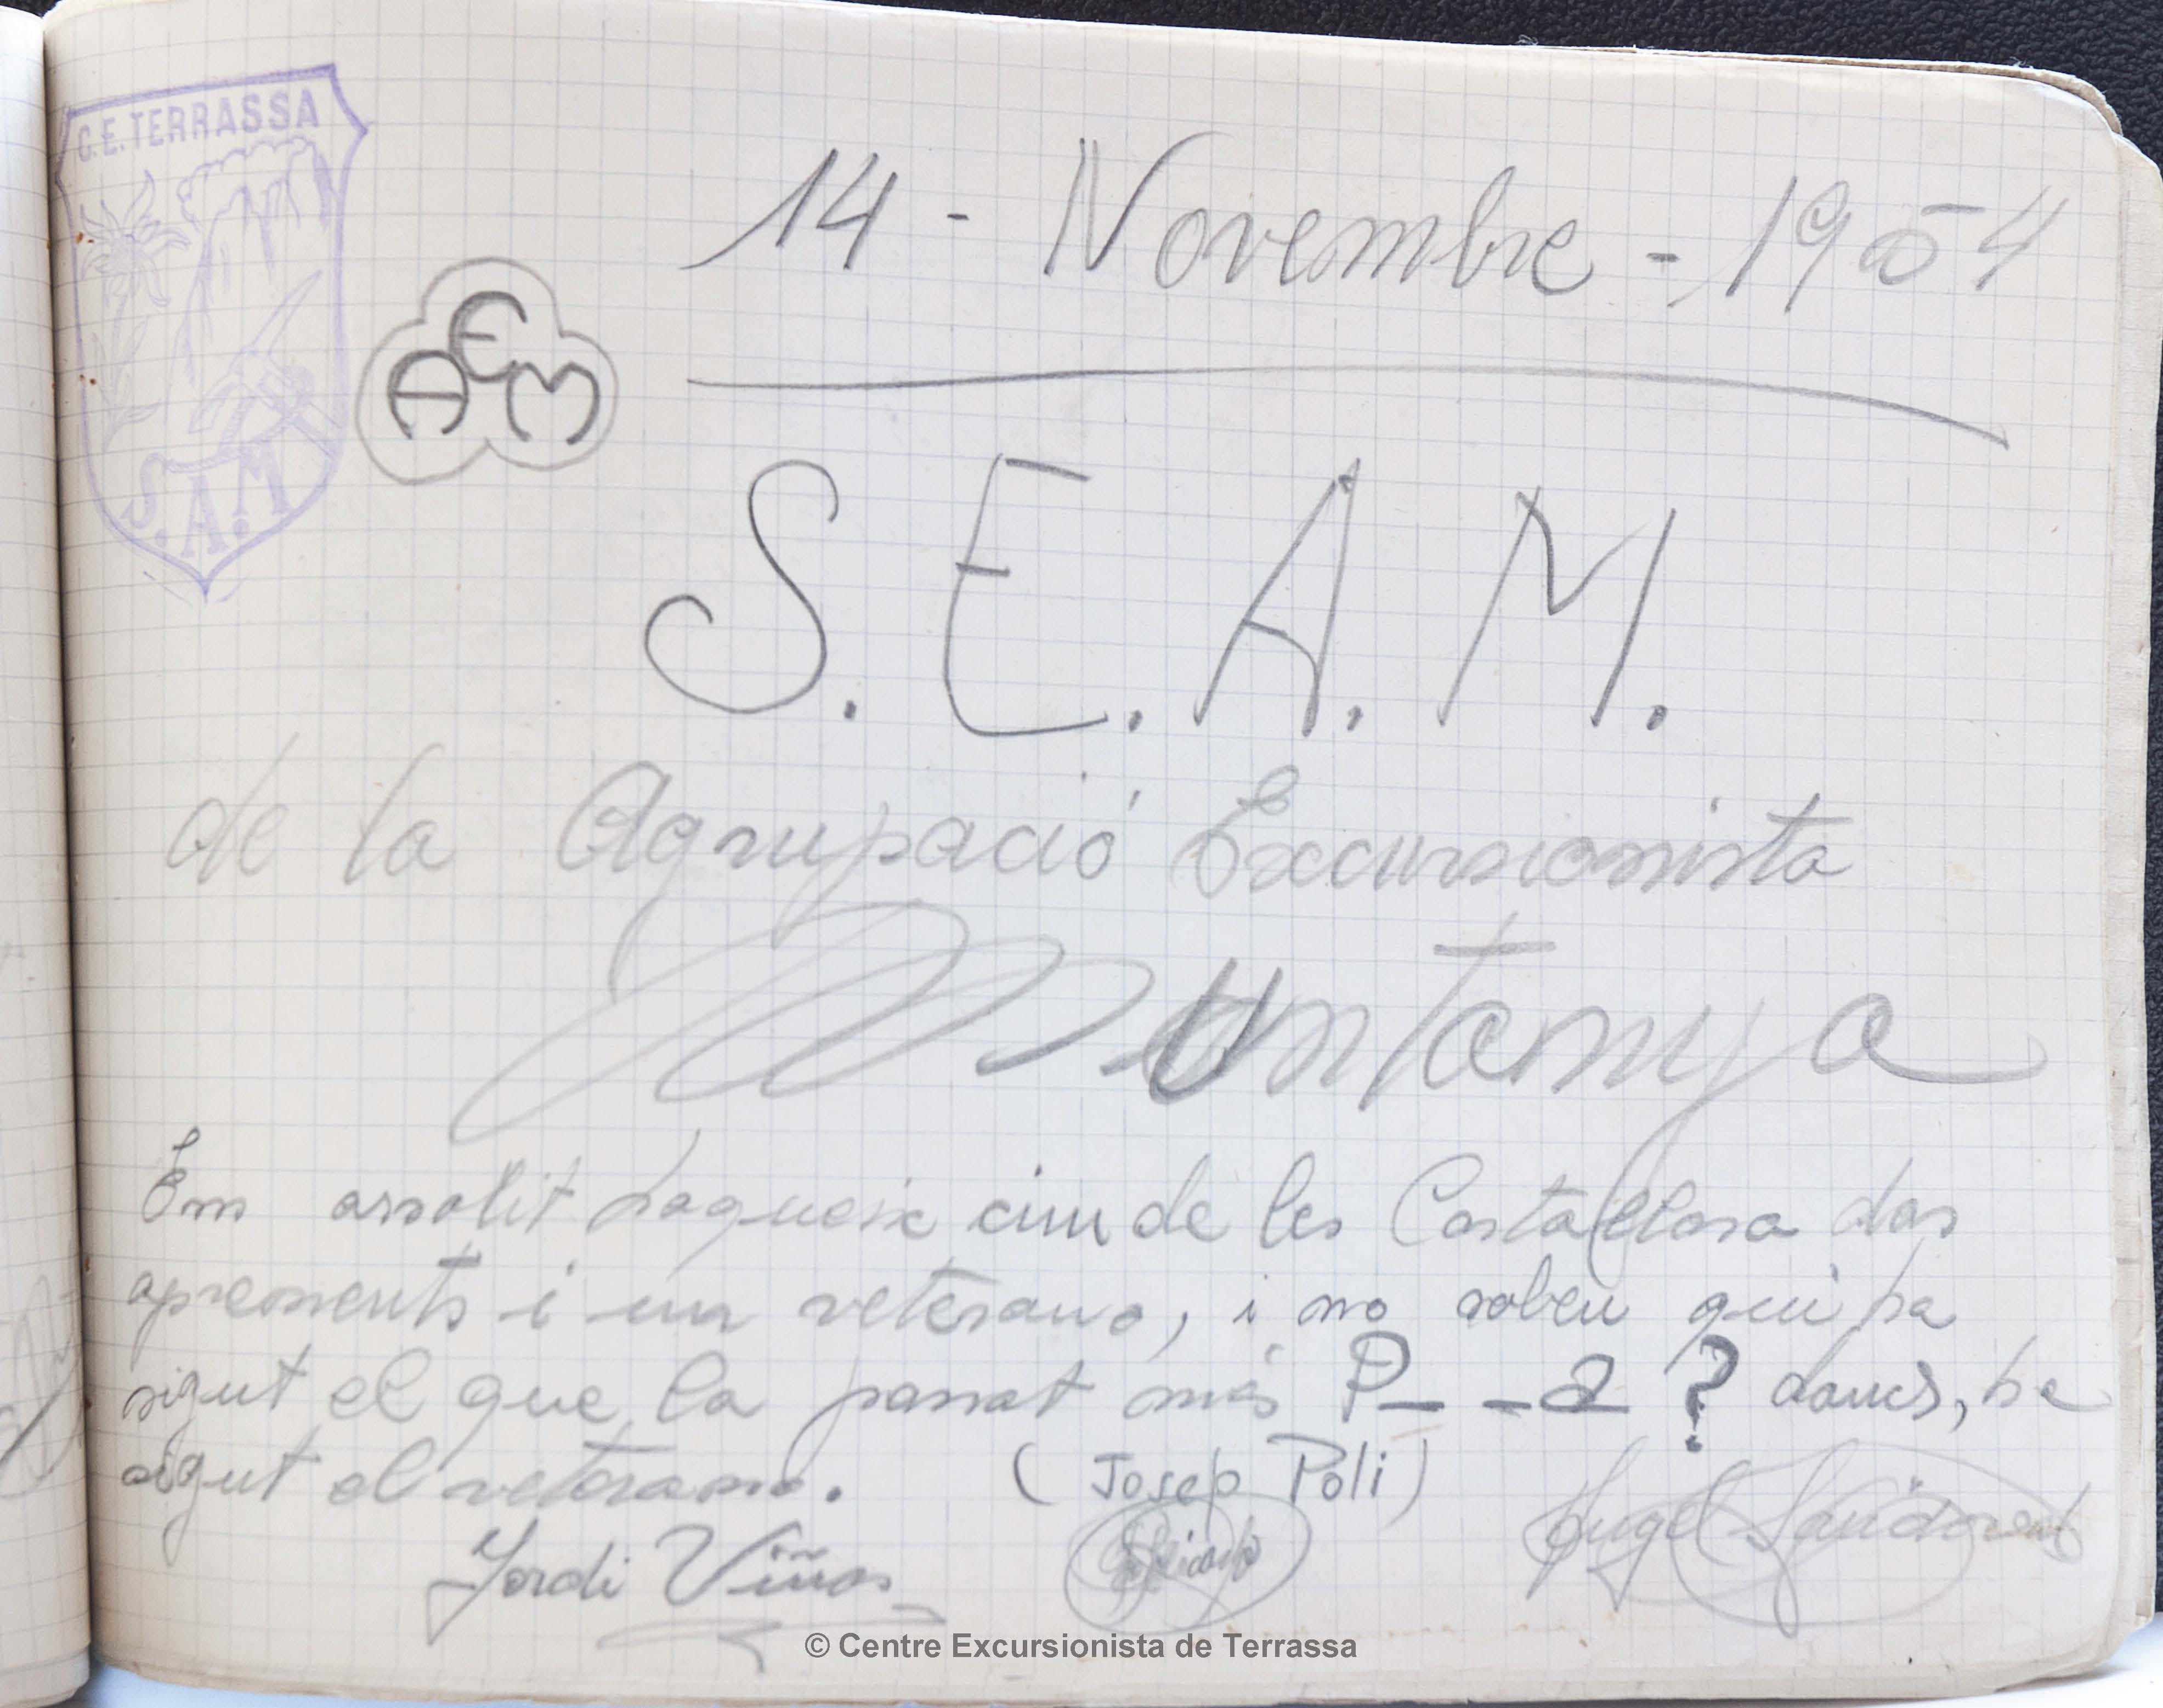 C.E. TERRASSA
S.A.M
AEM
14 - Novembre - 1954
S. E. A. M.
de la Agrupació Excursionista
Muntanya
Em assolit haqueix cim de les Castallasa dos
aprenents i un veterano, i no sabeu qui ha
sigut el que la passat més P_ _a ? doncs, ha
sigut el veterano. (Josep Poli)
Jordi Viñas
Angel
© Centre Excursionista de Terrassa